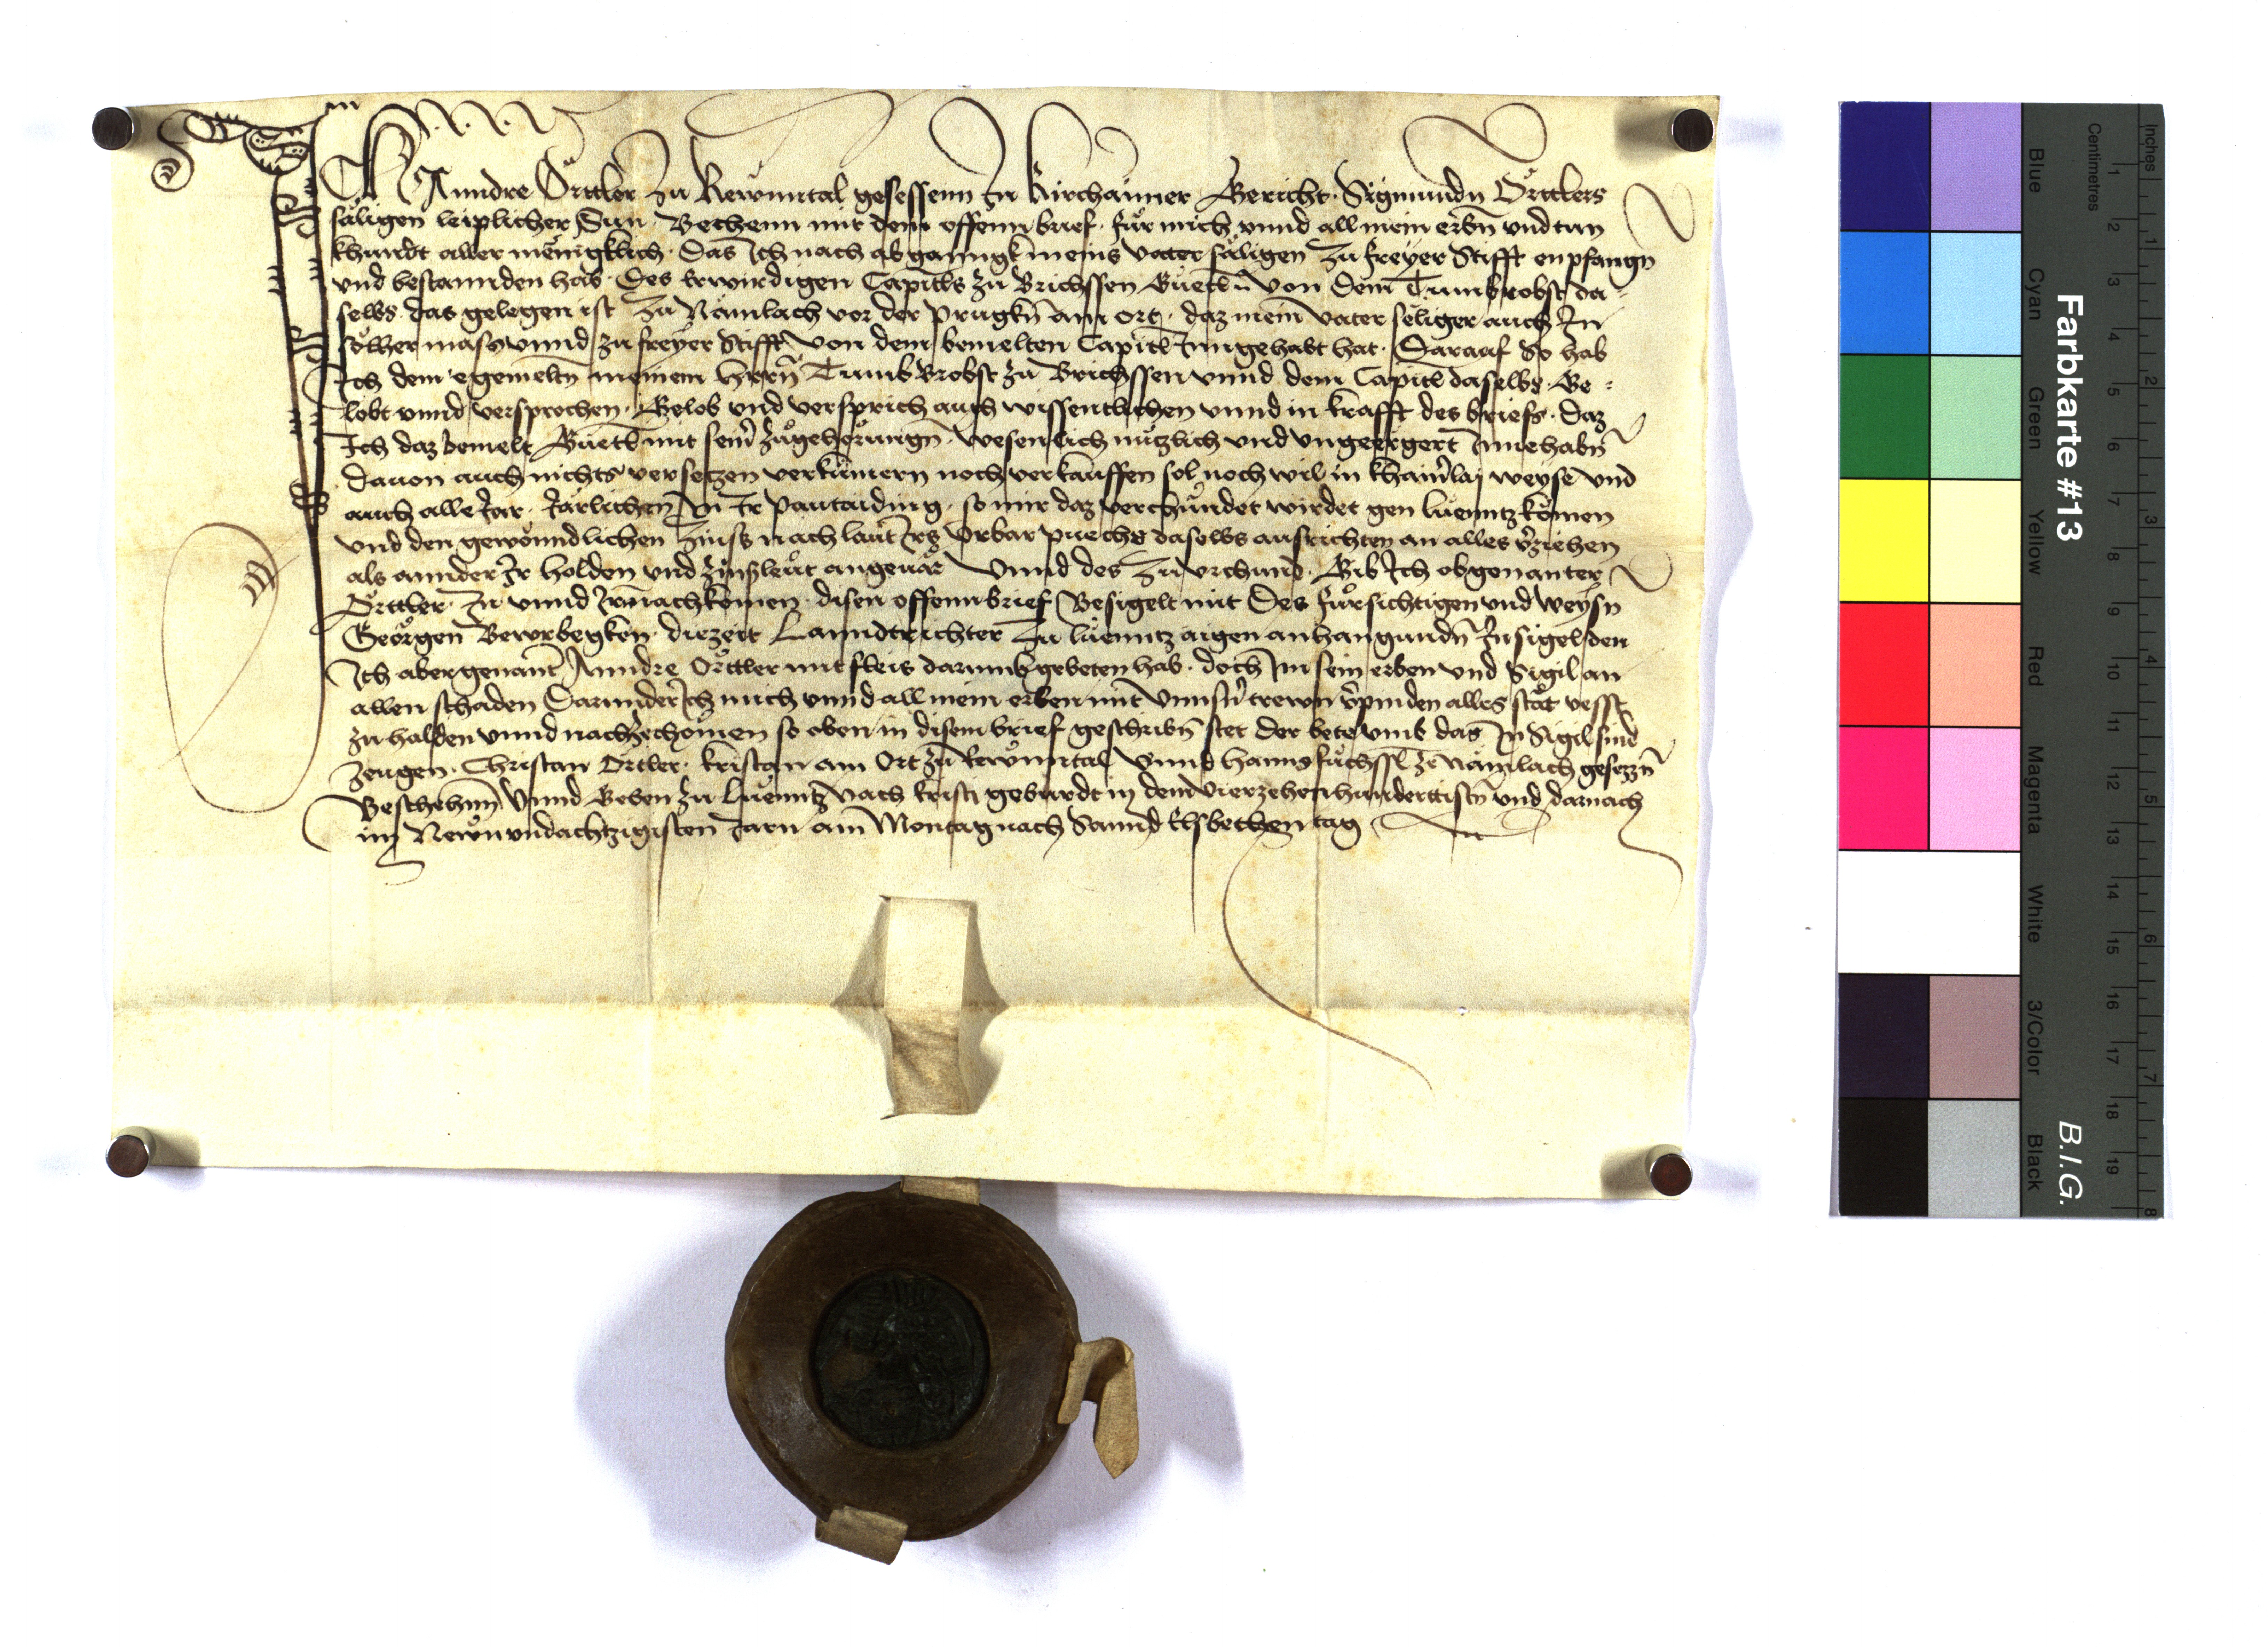 Ich Anndre Örttler zu Rewnntal gesessenn In Kirchaimer Gericht · Sigmundn Örttlers
säligen leiplicher Sun · Bechenn mit dem offenn brief · für mich vnnd all mein erbn̄ vnd tun
khundt aller mēnigklich · Das Ich nach abganngk meins vater säligen zu freyer Stifft enpfangn
vnd bestannden hab · Des Erwirdigen Capitls zu Brichssen Güetl von dem Tumbrobst da=
selbs · das gelegen ist zu Nämlach vor der prugkn̄ am ort · daz mein vater seliger auch In
sölher mass vnnd zu freyer Stifft von dem bemelten Capitl Inngehabt hat · Darauf So hab
Ich dem egemeltn̄ meinem Herrn̄ Tumb Brobst zu Brichssen vnnd dem Capitl daselbs · Ge=
lobt vnnd versprochen · Gelob vnd versprich auch wissentlichen vnnd in krafft des briefs · Daz
Ich daz bemelt Güetl mit sein̄ zugehorungn̄ · wesenlich nutzlich vnd vngeergert Innehabn̄
dauon auch nichts versetzen verkümern noch verkauffen sol noch wil in khain̄lai weyse vnd
auch alle Jar · Järlichen In Ir pantaiding · so mir daz verchündet wirdet gen Lüenntz kömen
vnd den gewönndlichen Zinss nach laut Irs Vrbar puechs daselbs ausrichten an alles v̄ziehen
als annder Ir holden vnd zinssleüt angeuär Vnnd des zu vrchund · Gib Ich obgenanter
Örttler · In vnnd Irn̄ nachkömen · disen offenn brief Besigelt mit Des fürsichtigen vnd weysn
Geörgen Bewrbegken · diezeit Lanndtrichter zu Lüenntz aigen anhangundn̄ Insigel den
Ich abergenant Anndre Örttler mit fleis darumb gebeten hab · doch Im sein erben vnd Sigil an
allen schaden Darunder Ich mich vnnd all mein erben mit vnnsn̄ trewn v̄pinden alles stät vesst
zu halden vnnd nachzechömen so oben in disem brief geschribn̄ stet Der bete vmb das In Sigil sind
zeugen · Christan Örtler · Kristan am Ort zu Rewnntal Vnnd Hanns Füchssl ze Nämlach gesezzn̄
Beschehnn Vnnd Geben zu Lüenntz Nach kristi geburdt in dem vierzehenhunderttistn̄ vnd darnach
im Newn vndachtzigisten Jarn am Montag nach Sannd Elsbethen tag
Farbkarte #13
B.I.G.
Blue
Cyan
Green
Yellow
Red
Magenta
White
3/Color
Black
Centimetres
Inches
1 2 3 4 5 6 7 8 9 10 11 12 13 14 15 16 17 18 19
1 2 3 4 5 6 7 8